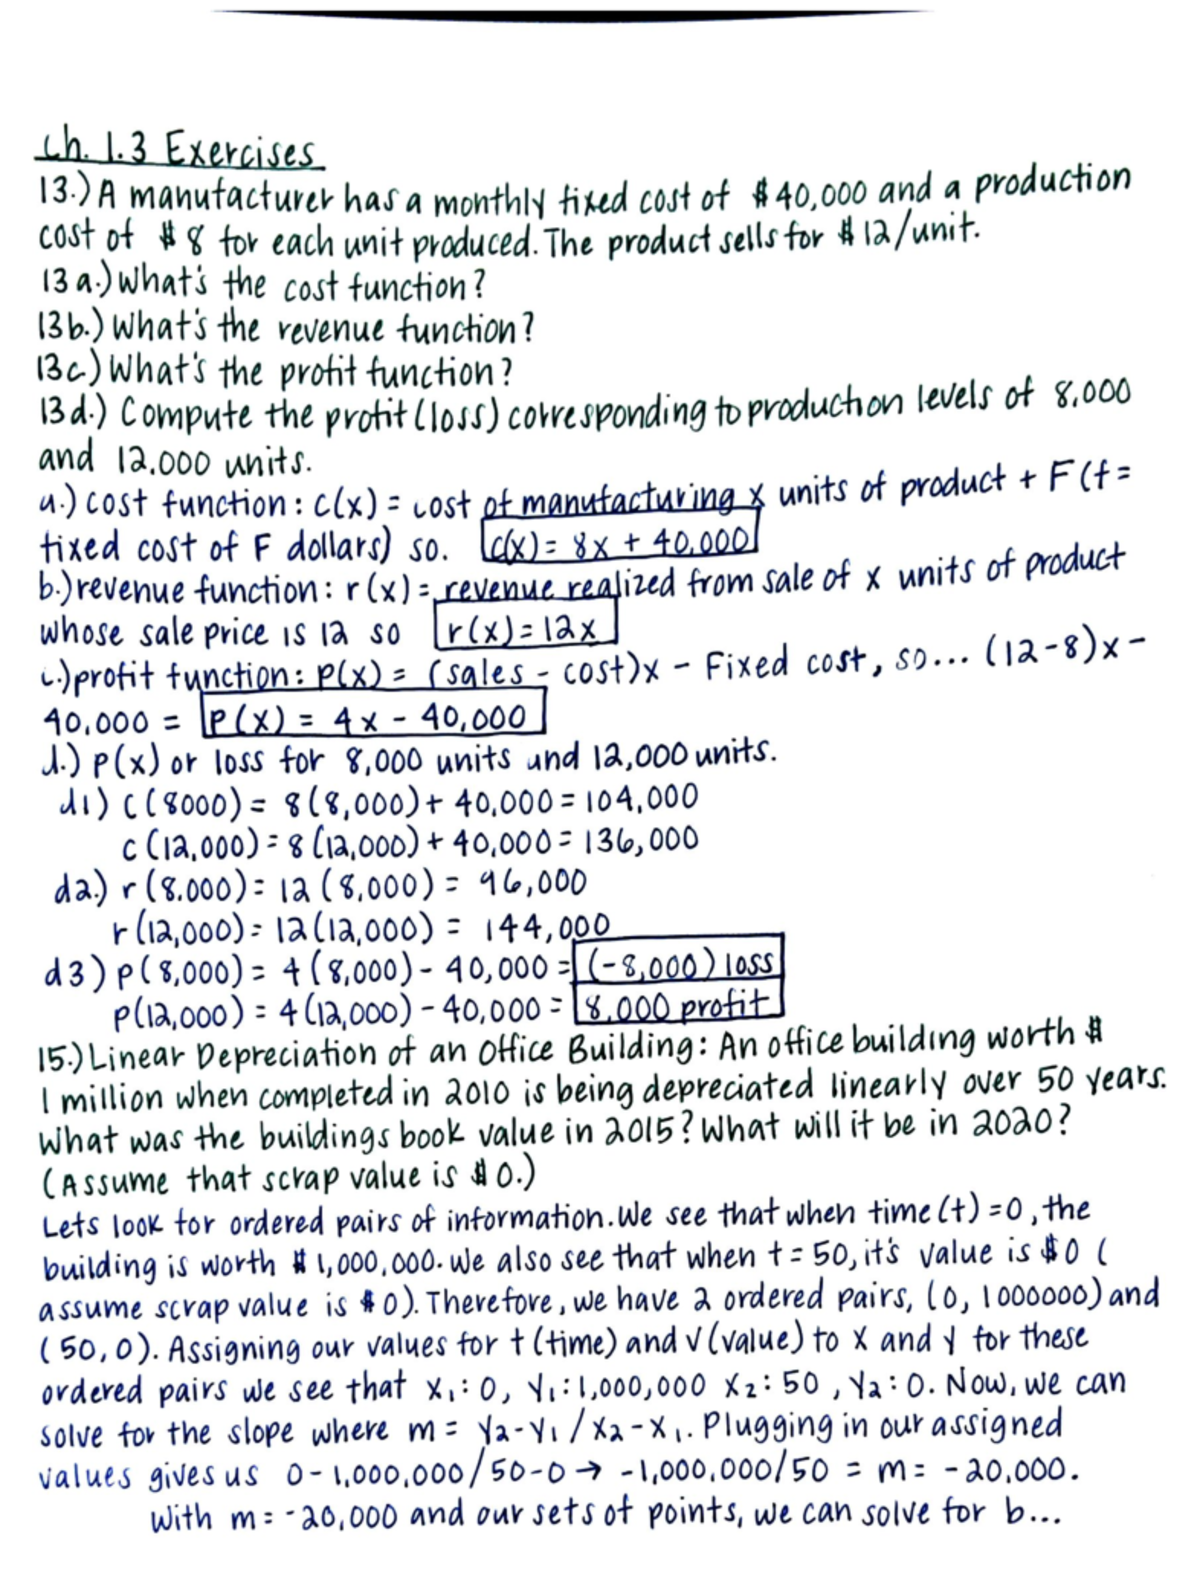 Ch. 1.3 Exercises
13.) A manufacturer has a monthly fixed cost of $40,000 and a production
cost of $8 for each unit produced. The product sells for $12/unit.
13a.) What's the cost function?
13b.) What's the revenue function?
13c.) What's the profit function?
13d.) Compute the profit (loss) corresponding to production levels of 8,000
and 12,000 units.
a.) cost function: c(x) = cost of manufacturing x units of product + F (f =
fixed cost of F dollars) so. c(x) = 8x + 40,000
b.) revenue function: r(x) = revenue realized from sale of x units of product
whose sale price is 12 so r(x) = 12x
c.) profit function: P(x) = (sales - cost)x - Fixed cost, so... (12-8)x -
40,000 = P(x) = 4x - 40,000
d.) p(x) or loss for 8,000 units and 12,000 units.
d1) c(8000) = 8(8,000) + 40,000 = 104,000
c(12,000) = 8(12,000) + 40,000 = 136,000
d2.) r(8,000) = 12(8,000) = 96,000
r(12,000) = 12(12,000) = 144,000
d3) p(8,000) = 4(8,000) - 40,000 = (-8,000) loss
p(12,000) = 4(12,000) - 40,000 = 8,000 profit
15.) Linear Depreciation of an Office Building: An office building worth $
1 million when completed in 2010 is being depreciated linearly over 50 years.
What was the buildings book value in 2015? What will it be in 2020?
(Assume that scrap value is $0.)
Lets look for ordered pairs of information. We see that when time (t) = 0, the
building is worth $1,000,000. We also see that when t = 50, it's value is $0 (
assume scrap value is $0). Therefore, we have 2 ordered pairs, (0, 1000000) and
(50, 0). Assigning our values for t (time) and V (value) to X and Y for these
ordered pairs we see that X₁: 0, Y₁: 1,000,000 X₂: 50, Y₂: 0. Now, we can
solve for the slope where m = Y₂-Y₁ / X₂-X₁. Plugging in our assigned
values gives us 0 - 1,000,000/50-0 → -1,000,000/50 = m = -20,000.
With m = -20,000 and our sets of points, we can solve for b...